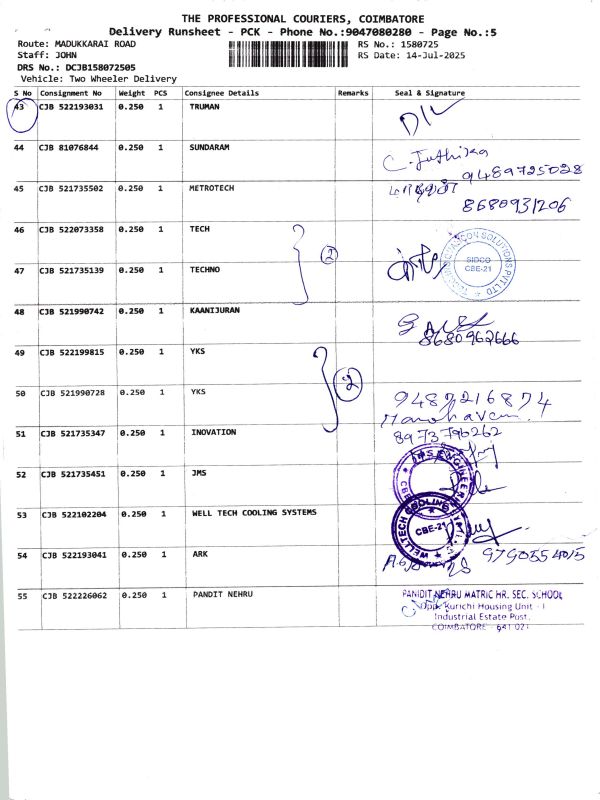 THE PROFESSIONAL COURIERS, COIMBATORE
Delivery Runsheet - PCK - Phone No.:9047080280 - Page No.:5
Route: MADUKKARAI ROAD RS No.: 1580725
Staff: JOHN RS Date: 14-Jul-2025
DRS No.: DCJB158072505
Vehicle: Two Wheeler Delivery
S No Consignment No Weight PCS Consignee Details Remarks Seal & Signature
43 CJB 522193031 0.250 1 TRUMAN
44 CJB 81076844 0.250 1 SUNDARAM C. Juthika
9489725028
45 CJB 521735502 0.250 1 METROTECH
8680931206
46 CJB 522073358 0.250 1 TECH
2
SIDCO
CBE-21
47 CJB 521735139 0.250 1 TECHNO
48 CJB 521990742 0.250 1 KAANIJURAN
8680962666
49 CJB 522199815 0.250 1 YKS
2
50 CJB 521990728 0.250 1 YKS 9487216874
Manohavan
51 CJB 521735347 0.250 1 INOVATION 8973796262
52 CJB 521735451 0.250 1 JMS
53 CJB 522102204 0.250 1 WELL TECH COOLING SYSTEMS
WELLTECH COOLING
CBE-21
54 CJB 522193041 0.250 1 ARK 9790554015
55 CJB 522226062 0.250 1 PANDIT NEHRU PANIDIT NEHRU MATRIC HR. SEC. SCHOOL
Opp. Kurichi Housing Unit - I
Industrial Estate Post,
COIMBATORE - 641 021